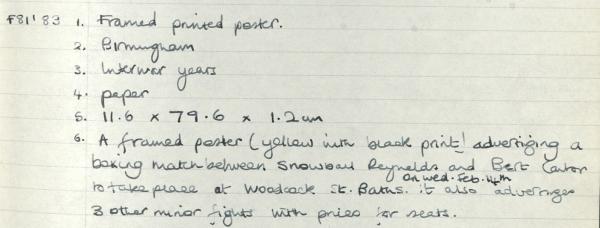 F81'83 1. Framed printed poster.
2. Birmingham
3. Interwar years
4. paper
5. 11.6 x 79.6 x 1.2cm
6. A framed poster (yellow with black print) advertising a
boxing match between Snowball Reynolds and Bert
on Wed. Feb. 4th
to take place at Woodcock St. Baths. it also advertises
3 other minor fights with prices for seats.